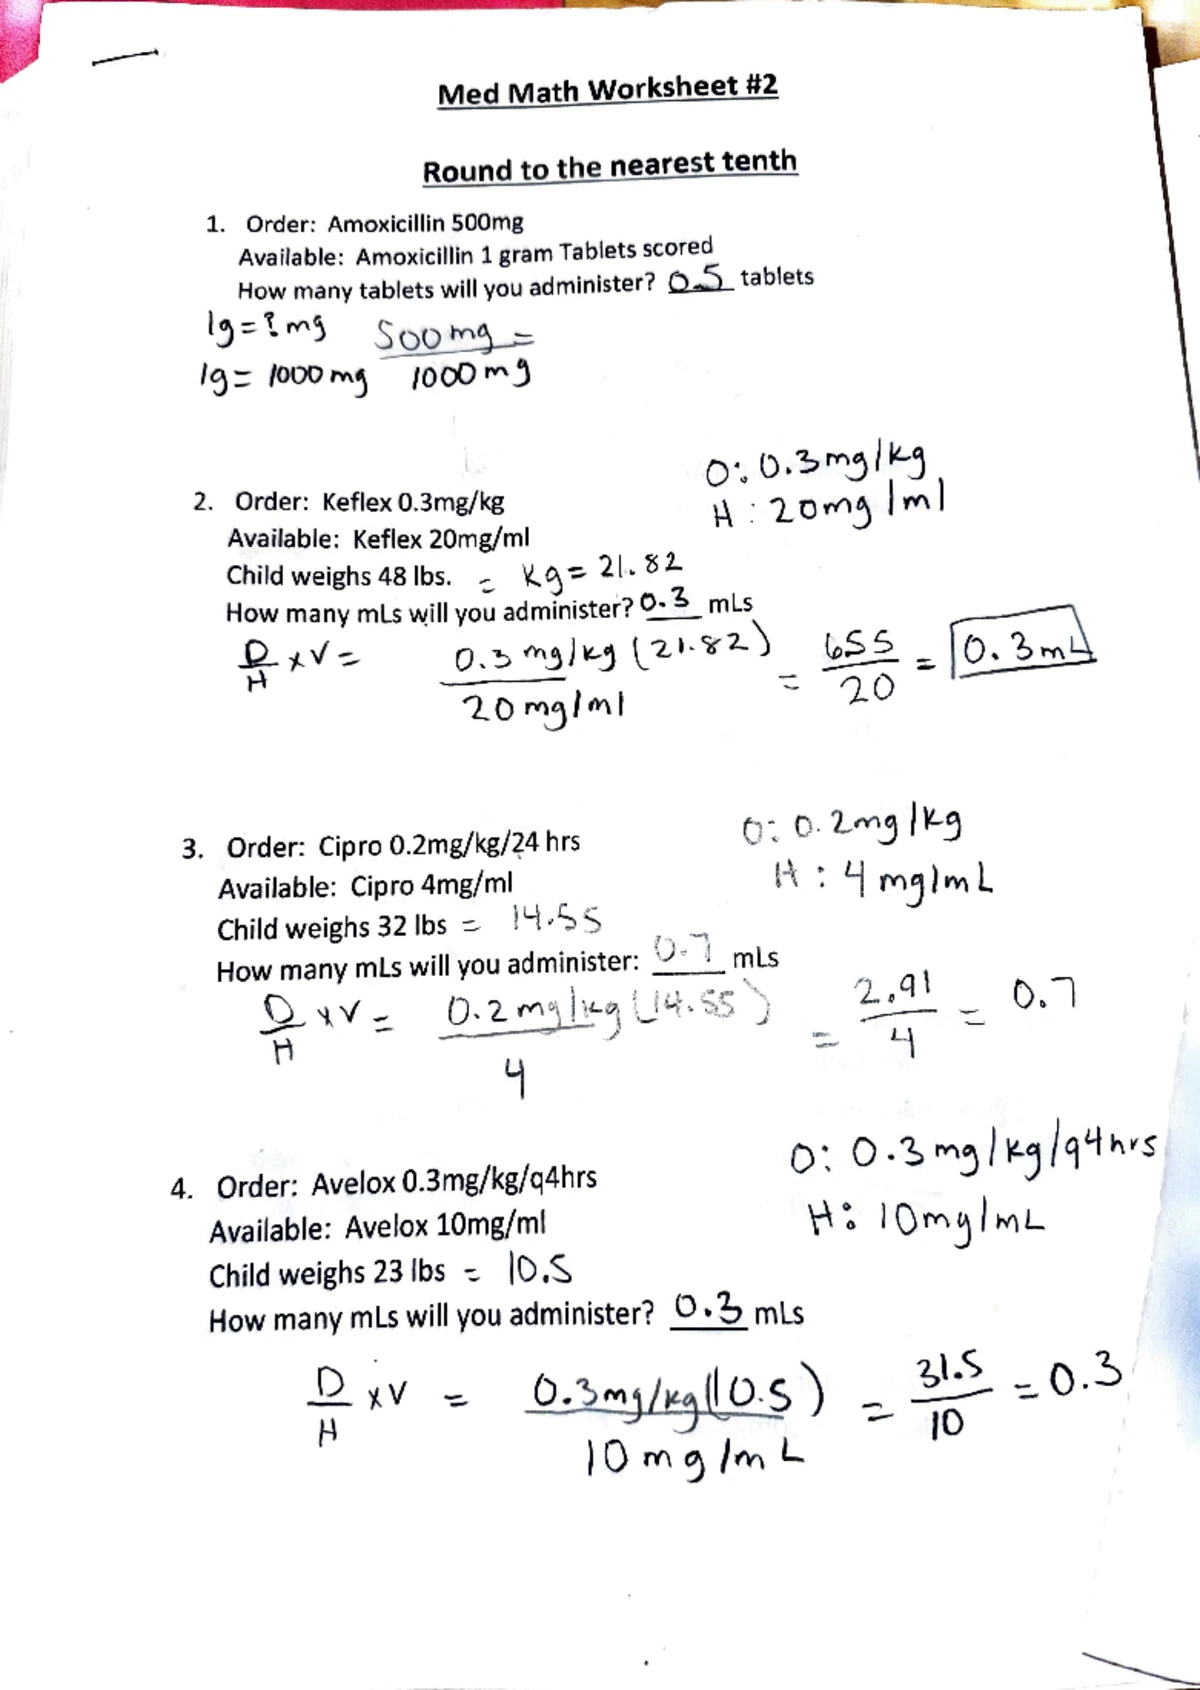 Med Math Worksheet #2
Round to the nearest tenth
1. Order: Amoxicillin 500mg
Available: Amoxicillin 1 gram Tablets scored
How many tablets will you administer? 0.5 tablets
1g = ? mg 500mg =
1g = 1000 mg 1000mg
O: 0.3mg/kg
H: 20mg/ml
2. Order: Keflex 0.3mg/kg
Available: Keflex 20mg/ml
Child weighs 48 lbs. = kg = 21.82
How many mLs will you administer? 0.3 mLs
D x V = 0.3 mg/kg (21.82) = 655 = 0.3mL
H 20 mg/ml 20
O: 0.2mg/kg
H: 4mg/mL
3. Order: Cipro 0.2mg/kg/24 hrs
Available: Cipro 4mg/ml
Child weighs 32 lbs = 14.55
How many mLs will you administer: 0.7 mLs
D x V = 0.2 mg/kg (14.55) = 2.91 = 0.7
H 4 4
O: 0.3mg/kg/q4hrs
H: 10mg/mL
4. Order: Avelox 0.3mg/kg/q4hrs
Available: Avelox 10mg/ml
Child weighs 23 lbs = 10.5
How many mLs will you administer? 0.3 mLs
D x V = 0.3mg/kg(10.5) = 31.5 = 0.3
H 10 mg/mL 10